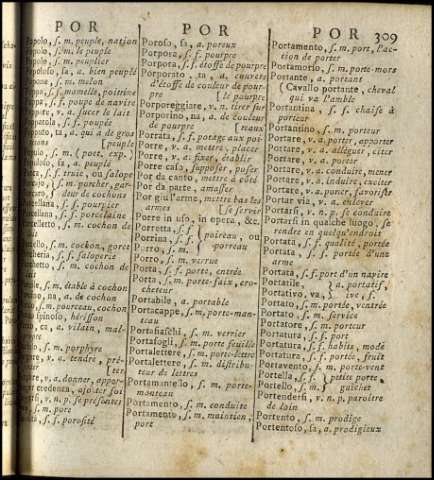 POR
POR
POR 309
Popolo, s. m. peuple, nation
s. m. le peuple
s. m. peuplier
a. bien peuplé
s. m. melon
s. mamelle, poitrine
s. f. poupe de navire
v. a. sucer le lait
s. f. poupée
ta, a. qui a de gros
{peuple
s. m. {poet. exp.
sa, a. peuplé
s. f. truie, ou salope
s. m. porcher, gar-
deur de cochons
s. f. pourpier
s. f. porcelaine
s. m. cochon de
lait
s. m. cochon, goret
s. f. saloperie
s. m. cochon de
lait
s. m. étable à cochon
na, a. de cochon
s. m. pourceau
spinoso, hérisson
ca, a. vilain, mal-
propre
s. m. porphyre
v. a. tendre, pré-
{ter
v. a. donner, appor-
credenza, ajouter foi
v. n. p. se présenter
s. m. pore
s. f. porosité
Poroso, sa, a. poreux
Porpora, s. f. pourpre
Porpora, s. f. étoffe de pourpre
Porporato, ta, a. couvert
d'étoffe de couleur de pour-
pre {le pourpre
Porporeggiare, v. n. tirer sur
Porporino, na, a. de couleur
de pourpre {reaux
Porrata, s. f. potage aux poi-
Porre, v. a. mettre, placer
Porre, v. a. fixer, établir
Porre caso, supposer, poser
Por da canto, mettre à côté
Por da parte, amasser
Por giu l'arme, mettre bas les
armes {se servir
Porre in uso, in opera, &c.
Porretta, s. f.
Porrina, s. f. { poireau, ou
Porro, s. m. porreau
Porro, s. m. verrue
Porta, s. f. porte, entrée
Porta, s. m. porte-faix, cro-
cheteur
Portabile, a. portable
Portacappe, s. m. porte-man-
teau
Portafiaschi, s. m. verrier
Portafogli, s. m. porte feuille
Portalettere, s. m. porte-lettre
Portalettere, s. m. distribu-
teur de lettres
Portamantello, s. m. porte-
manteau
Portamento, s. m. conduite
Portamento, s. m. maintien,
port
Portamento, s. m. port, l'ac-
tion de porter
Portamorso, s. m. porte-mors
Portante, a. portant
{Cavallo portante, cheval
qui va l'amble
Portantina, s. f. chaise à
porteur
Portantino, s. m. porteur
Portare, v. a. porter, apporter
Portare, v. a. alléguer, citer
Portare, v. a. porter
Portare, v. a. conduire, mener
Portare, v. a. induire, exciter
Portare, v. a. poner, favoriser
Portar via, v. a. enlever
Portarsi, v. n. p. se conduire
Portarsi in qualche luogo, se
rendre en quelqu'endroit
Portata, s. f. qualité, portée
Portata, s. f. portée d'une
arme
Portata, s. f. port d'un navire
Portatile, { a. portatif,
Portativo, va, ive s. f.
Portato, s. m. portée, ventrée
Portato, s. m. service
Portatore, s. m. porteur
Portatura, s. f. port
Portatura, s. f. habits, mode
Portatura, s. f. portée, fruit
Portavento, s. m. porte-vent
Portella, s. f. { petite porte
Portello, s. m. guichet
Portendersi, v. n. p. paroître
de loin
Portento, s. m. prodige
Portentoso, sa, a. prodigieux